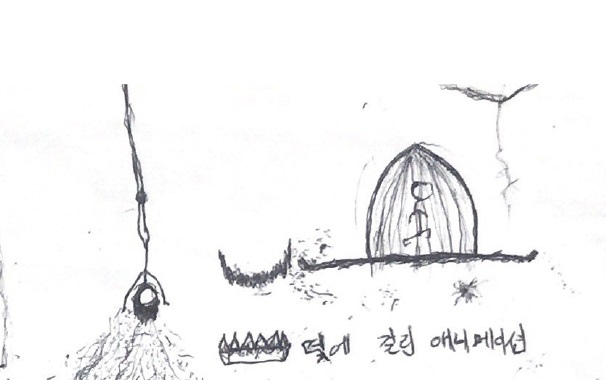 덫에 걸린 애니메이션